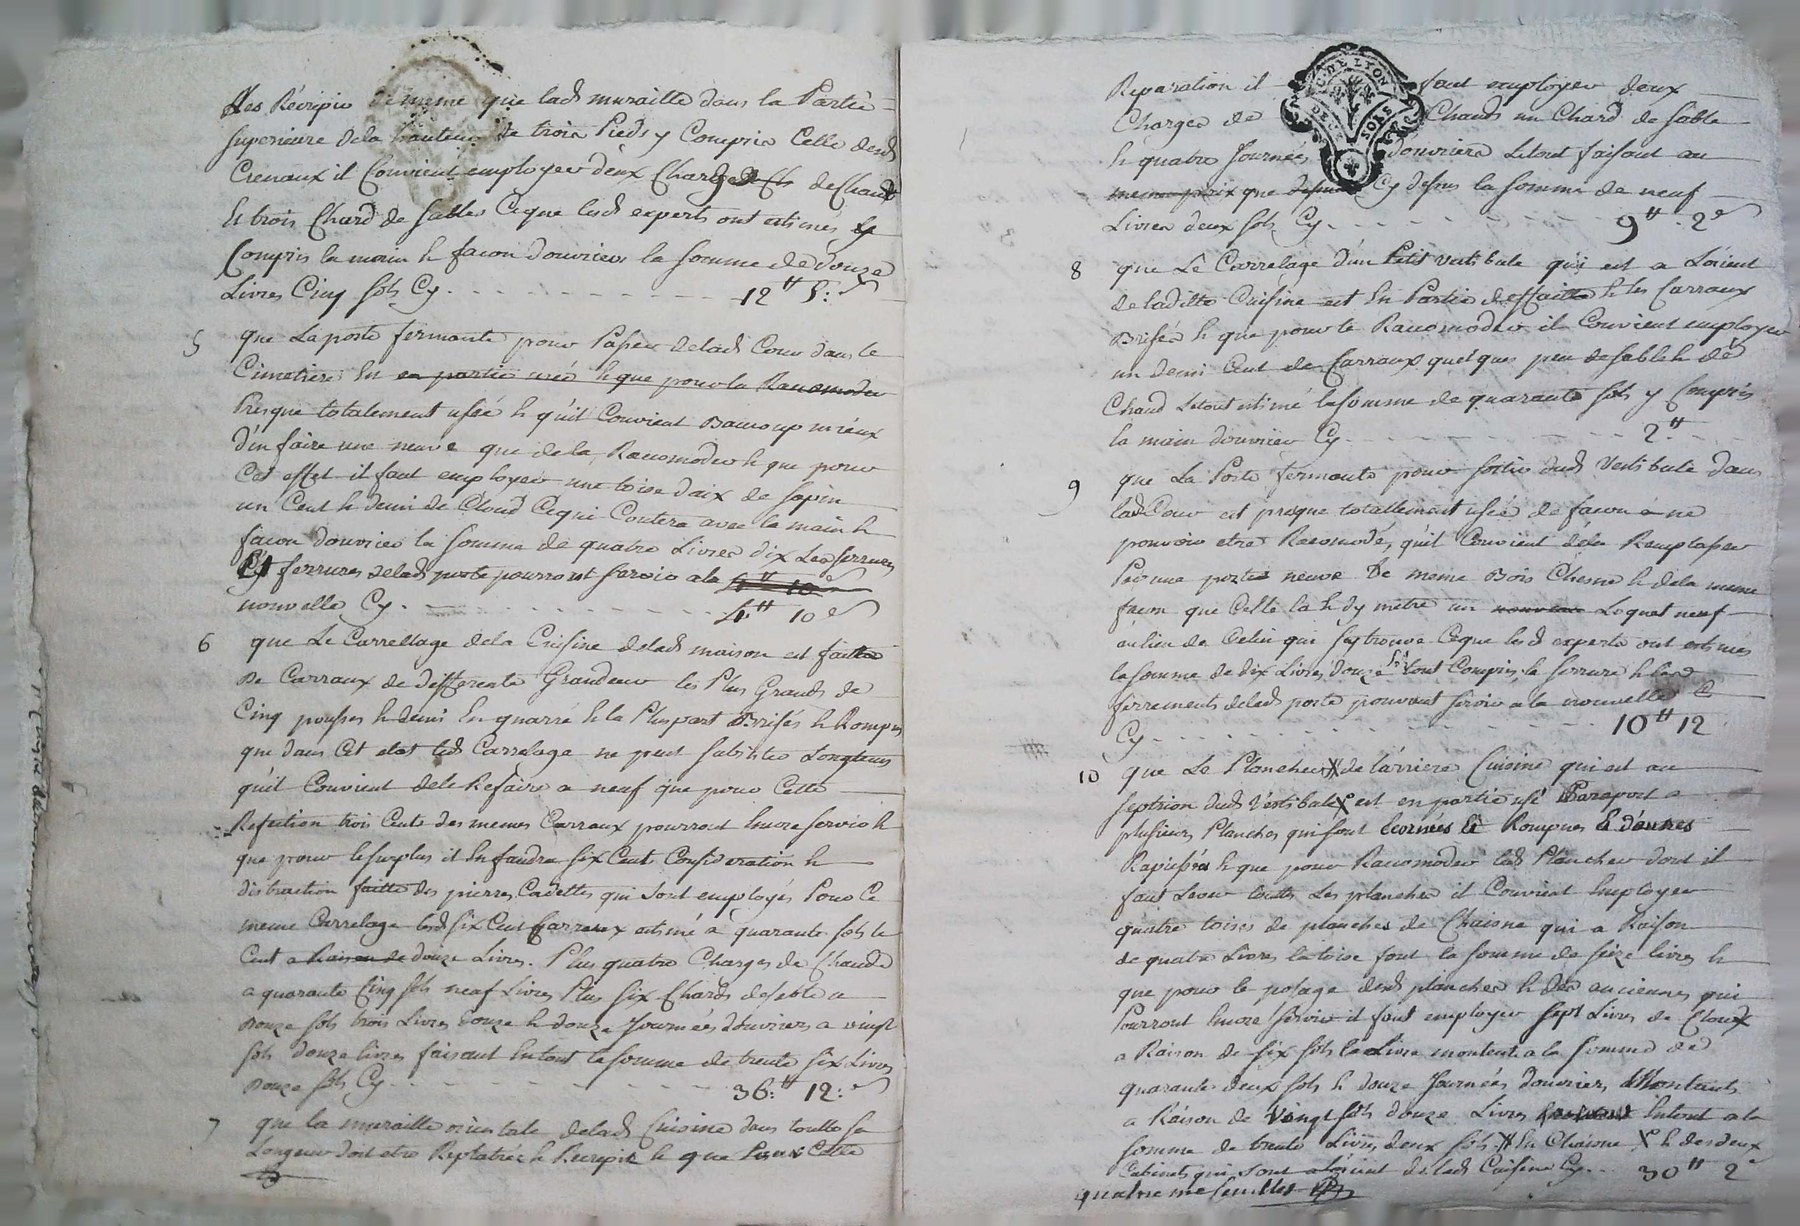 des Récripie de meme que lad. muraille dans la Partie
superieure de la hauteur de trois Pieds y Compris Celle desd.
Crenaux il Convient employer deux Charges de Chaud
& trois Chard de sable Ce que lesd. experts ont estimés y
Compris la main & facon douvriers la somme de douze
Livres Cinq sols Cy. 12 ₶ 5 s
5 que La porte fermante pour Passer de lad. Cour dans le
Cimetiere en en partie usée & que pour la Racomoder
Presque totalement usée & qu'il Convient Baucoup mieux
d'en faire une neuve que de la Racomoder & que pour
Cet effet il faut employer une toise d'aix de sapin
un Cent & demi de Cloud Ce qui Coutera avec la main &
facon douvrier la somme de quatre Livres dix Les serrures
Et ferrures de lad. porte pourront servir a la 4 ₶ 10 s
nouvelle Cy. 4 ₶ 10 s
6 que Le Carrellage de la Cuisine de lad. maison est faitte
De Carraux de differente Grandeur les Plus Grands de
Cinq pousses & demi En quarré & la Pluspart Brisés & Rompus
que dans Cet etat led. Carrelage ne peut subsister Longtems
qu'il Convient de le Refaire a neuf que pour Cette
Refection trois Cents des memes Carraux pourront encore servir &
que pour le surplus il En faudra six Cent Consideration &
distraction faitte des pierres Cadettes qui sont employés Pour Ce
meme Carrelage lesd. six Cent Carraux estimé a quarante sols le
Cent a Raison de douze Livres. Plus quatre Charges de Chaud
a quarante Cinq sols neuf Livres Plus six Chards de sable a
Douze sols trois Livres douze & douze Journées d'ouvriers a vingt
sols douze livres faisant En tout la somme de trente six Livres
Douze sols Cy. 36 ₶ 12 s
7 que la muraille orientale de lad. Cuisine dans toutte sa
Longueur doit etre Replatrée & Recripie & que Pour Cette
Reparation il faut employer deux
Charges de Chaud un Chard de sable
& quatre Journées d'ouvriers Le tout faisant au
meme prix que dessus Cy dessus la somme de neuf
Livres deux sols Cy. 9 ₶ 2 s
GE DE LYON
8 que Le Carrelage d'un Petit Vestibule qui est a Lorient
de laditte Cuisine est En Partie deffaitte & les Carraux
Brisés & que pour le Racomoder il Convient employer
un demi Cent de Carraux quelques peu de sable & de
Chaud Le tout estimé la somme de quarante sols y Compris
la main d'ouvrier Cy. 2 ₶
9 que La Porte fermante pour sortir dud. Vestibule dans
lad. Cour est presque totallement usée de facon a ne
pouvoir etre Racomodé, qu'il Convient de la Remplasser
Par une porte neuve de meme Bois Chesne & de la meme
facon que Celle la & d'y metre un nouveau Loquet neuf
au lieu de Celui qui s'y trouve Ce que lesd. experts ont estimés
la somme de dix Livres douze sols tout Compris, la serrure & les
ferrements de lad. porte pouvant servir a la nouvelle
Cy. 10 ₶ 12
10 que Le Plancher de larriere Cuisine qui est au
septrion dud. Vestibule est en partie usé Raraport a
plusieurs Planches qui sont Ecornées & Rompues & d'autres
Rapiessées & que pour Racomoder led. Plancher dont il
faut Lever toutes Les planches il Convient Employer
quatre toises de planches de Chaisne qui a Raison
de quatre Livres la toise font la somme de seize livres &
que pour le posage desd. planches & des anciennes qui
Pourront Encore servir il faut employer sept Livres de Cloux
a Raison de six sols la Livre montent a la somme de
quarante deux sols & douze Journées d'ouvriers Montants
a Raison de vingt sols douze Livres En tout a la
somme de trente Livres deux sols En Chaisne & des deux
Cabinets qui sont a lorient de lad. Cuisine Cy. 30 ₶ 2 s
quatrieme feuilles